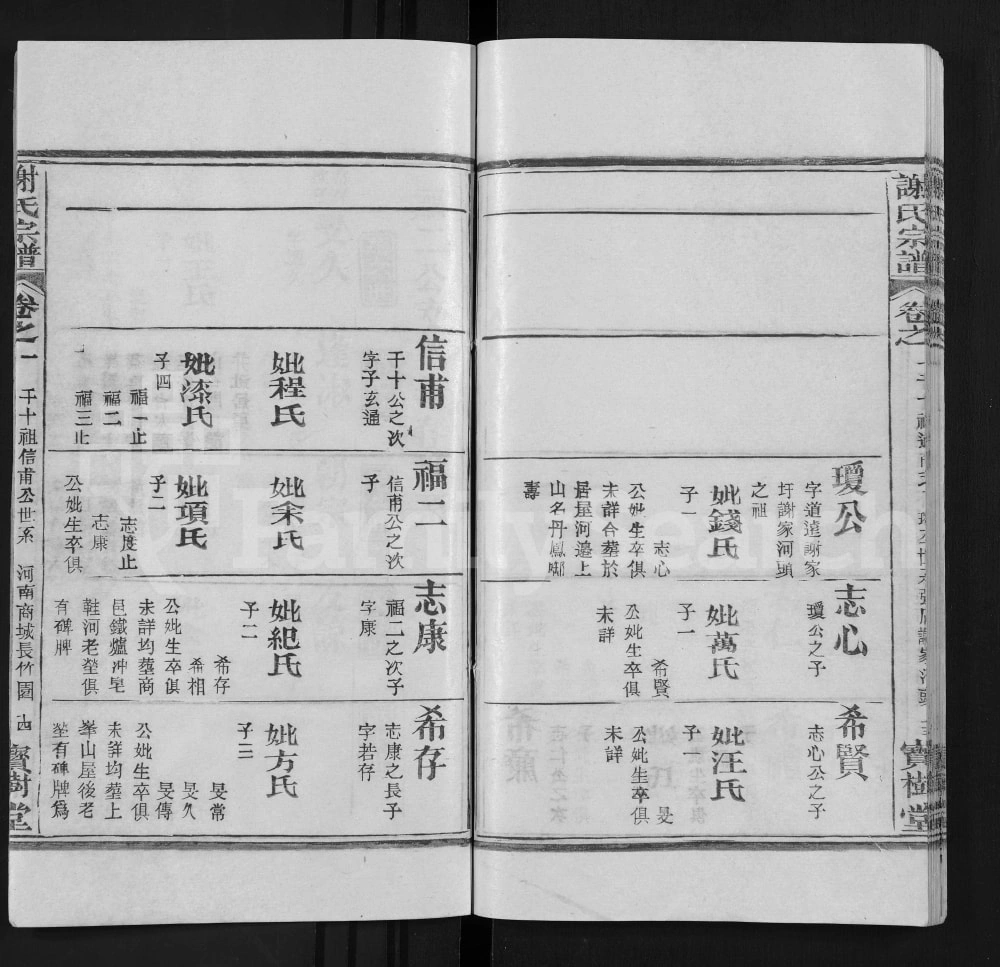 謝氏宗譜
卷之一
瓊公
字道遠謝家
圩謝家河頭
之祖
妣錢氏
子一
志心
公妣生卒俱
未詳合墓於
居屋河邉上
山名丹鳳啣
壽
志心
瓊公之子
妣萬氏
子一
希賢
公妣生卒俱
未詳
希賢
志心公之子
妣汪氏
子
旻
公妣生卒俱
未詳
寳樹堂
信甫
千十公之次
字子玄通
妣程氏
妣漆氏
子四
福一止
福二
福三止
福二
信甫公之次
子
妣余氏
妣項氏
子二
志度止
志康
公妣生卒俱
志康
福二之次子
字康
妣紀氏
子二
希存
希相
公妣生卒俱
未詳均塟商
邑鐵爐冲皂
鞋河老塋俱
有碑牌
希存
志康之長子
字若存
妣方氏
子三
旻常
旻久
旻傳
公妣生卒俱
未詳均塟上
峯山屋後老
塋有碑牌為
謝氏宗譜
卷之一
千十祖信甫公世系
河南商城長竹園
十四
寳樹堂